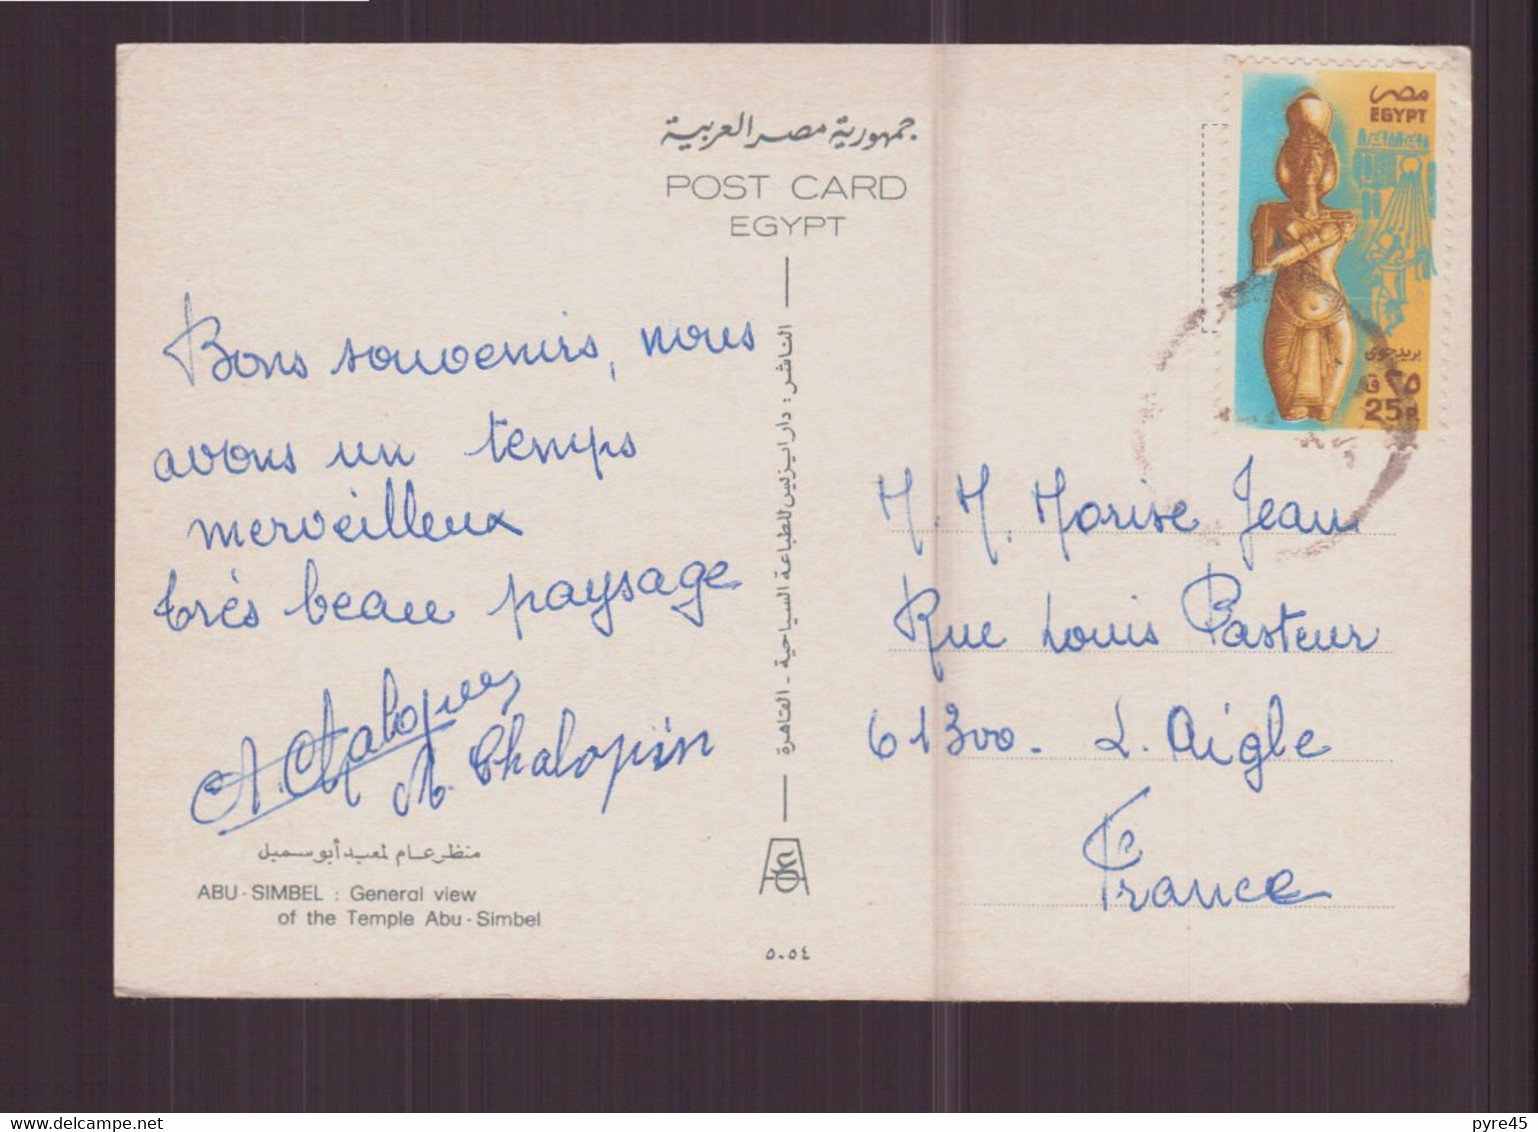 جمهورية مصر العربية
POST CARD
EGYPT
Bons souvenirs, nous
avons un temps
merveilleux
très beau paysage
A. Chalopin
منظر عام لمعبد أبو سمبل
ABU-SIMBEL : General view
of the Temple Abu-Simbel
الناشر : دار ايزيس للطباعة السياحية - القاهرة
٥٠٥٤
مصر
EGYPT
بريد جوى
٢٥ ق
25P.
M. M. Morise Jean
Rue Louis Pasteur
61300 - L. Aigle
France
delcampe.net
pyre45